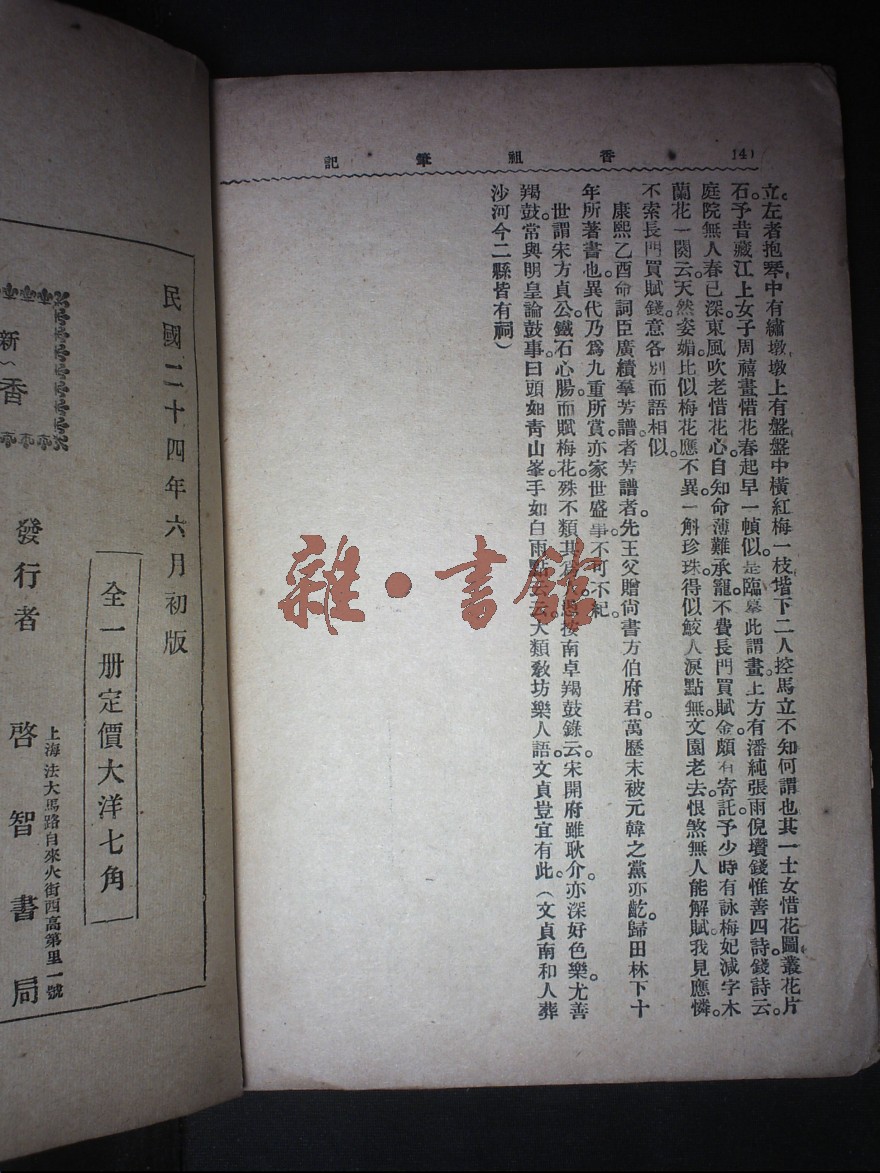 香祖筆記
(4)
立。左者抱琴。中有繡墩。墩上有盤。盤中橫紅梅一枝。堦下二人控馬立。不知何謂也。其一士女惜花圖。叢花片
石。予昔藏江上女子周禧畫惜花春起早一幀似。是臨摹此謂畫。上方有潘純張雨倪瓚錢惟善四詩。錢詩云。
庭院無人春已深。東風吹老惜花心。自知命薄難承寵。不費長門買賦金。頗有寄託。予少時有詠梅妃減字木
蘭花一闋云。天然姿媚。比似梅花應不異。一斛珍珠。得似鮫人淚點無。文園老去。恨煞無人能解賦。我見應憐。
不索長門買賦錢。意各別而語相似。
康熙乙酉命詞臣廣續羣芳譜者芳譜者。先王父贈尙書方伯府君。萬歷末被元韓之黨亦齕。歸田林下十
年所著書也。異代乃爲九重所賞。亦家世盛事。不可不紀。
世謂宋方貞公。鐵石心腸。而賦梅花。殊不類其按南卓羯鼓錄。云。宋開府雖耿介。亦深好色樂。尤善
羯鼓。常與明皇論鼓事。曰頭如靑山峯。手如白雨點。云云。大類敎坊樂人語。文貞豈宜有此。(文貞南和人葬
沙河今二縣皆有祠)
雜·書館
民國二十四年六月初版
全一册定價大洋七角
上海法大馬路自來火街西高第里一號
發行者 啓智書局
新
香